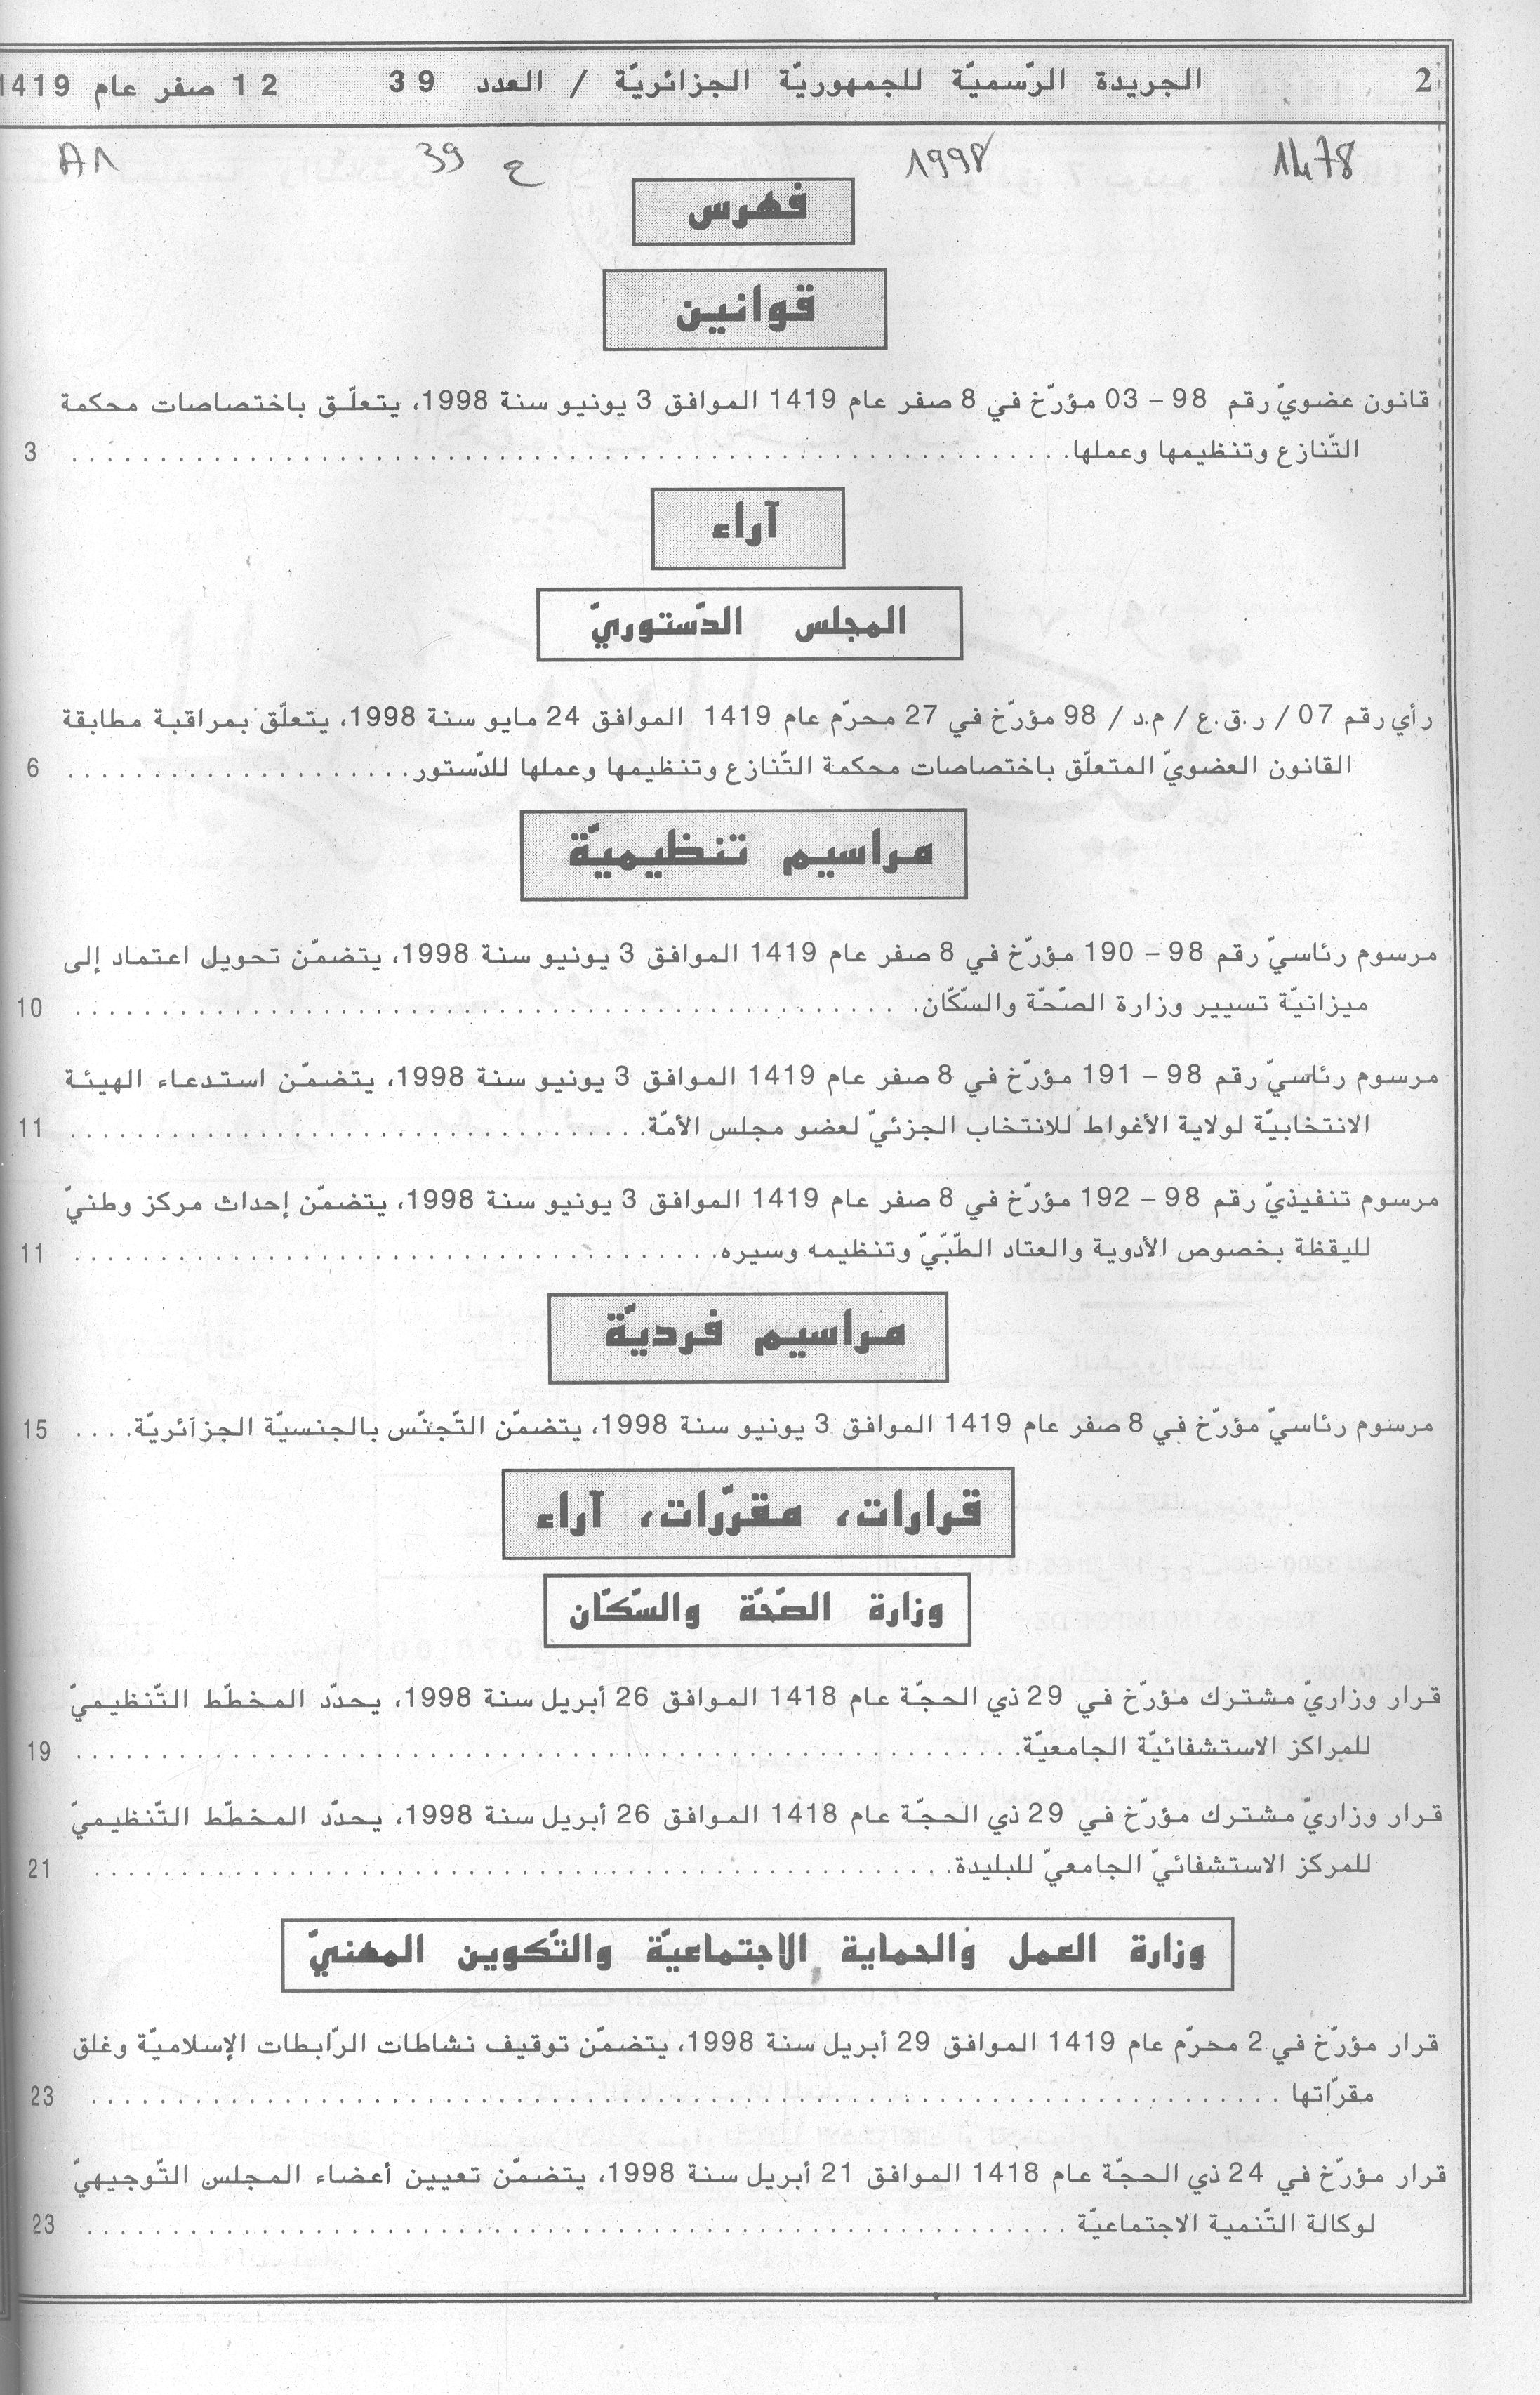 2 الجريدة الرّسميّة للجمهوريّة الجزائريّة / العدد 39 12 صفر عام 1419
1478 1998 ع 39 A1
فهرس
قوانين
قانون عضويّ رقم 98 – 03 مؤرّخ في 8 صفر عام 1419 الموافق 3 يونيو سنة 1998، يتعلّق باختصاصات محكمة
التّنازع وتنظيمها وعملها. . . . . . . . . . . . . . . . . . . . 3
آراء
المجلس الدّستوريّ
رأي رقم 07 / ر.ق.ع / م.د / 98 مؤرّخ في 27 محرّم عام 1419 الموافق 24 مايو سنة 1998، يتعلّق بمراقبة مطابقة
القانون العضويّ المتعلّق باختصاصات محكمة التّنازع وتنظيمها وعملها للدّستور. . . . . . . . . . 6
مراسيم تنظيميّة
مرسوم رئاسيّ رقم 98 – 190 مؤرّخ في 8 صفر عام 1419 الموافق 3 يونيو سنة 1998، يتضمّن تحويل اعتماد إلى
ميزانيّة تسيير وزارة الصّحّة والسّكّان. . . . . . . . . . . . . . . . 10
مرسوم رئاسيّ رقم 98 – 191 مؤرّخ في 8 صفر عام 1419 الموافق 3 يونيو سنة 1998، يتضمّن استدعاء الهيئة
الانتخابيّة لولاية الأغواط للانتخاب الجزئيّ لعضو مجلس الأمّة. . . . . . . . . . . . 11
مرسوم تنفيذيّ رقم 98 – 192 مؤرّخ في 8 صفر عام 1419 الموافق 3 يونيو سنة 1998، يتضمّن إحداث مركز وطنيّ
لليقظة بخصوص الأدوية والعتاد الطّبّيّ وتنظيمه وسيره. . . . . . . . . . . . . . 11
مراسيم فرديّة
مرسوم رئاسيّ مؤرّخ في 8 صفر عام 1419 الموافق 3 يونيو سنة 1998، يتضمّن التّجنّس بالجنسيّة الجزائريّة. . . . 15
قرارات، مقرّرات، آراء
وزارة الصّحّة والسّكّان
قرار وزاريّ مشترك مؤرّخ في 29 ذي الحجّة عام 1418 الموافق 26 أبريل سنة 1998، يحدّد المخطّط التّنظيميّ
للمراكز الاستشفائيّة الجامعيّة. . . . . . . . . . . . . . . . . . 19
قرار وزاريّ مشترك مؤرّخ في 29 ذي الحجّة عام 1418 الموافق 26 أبريل سنة 1998، يحدّد المخطّط التّنظيميّ
للمركز الاستشفائيّ الجامعيّ للبليدة. . . . . . . . . . . . . . . . 21
وزارة العمل والحماية الاجتماعيّة والتّكوين المهنيّ
قرار مؤرّخ في 2 محرّم عام 1419 الموافق 29 أبريل سنة 1998، يتضمّن توقيف نشاطات الرّابطات الإسلاميّة وغلق
مقرّاتها . . . . . . . . . . . . . . . . . . . . . . 23
قرار مؤرّخ في 24 ذي الحجّة عام 1418 الموافق 21 أبريل سنة 1998، يتضمّن تعيين أعضاء المجلس التّوجيهيّ
لوكالة التّنمية الاجتماعيّة . . . . . . . . . . . . . . . . . . 23